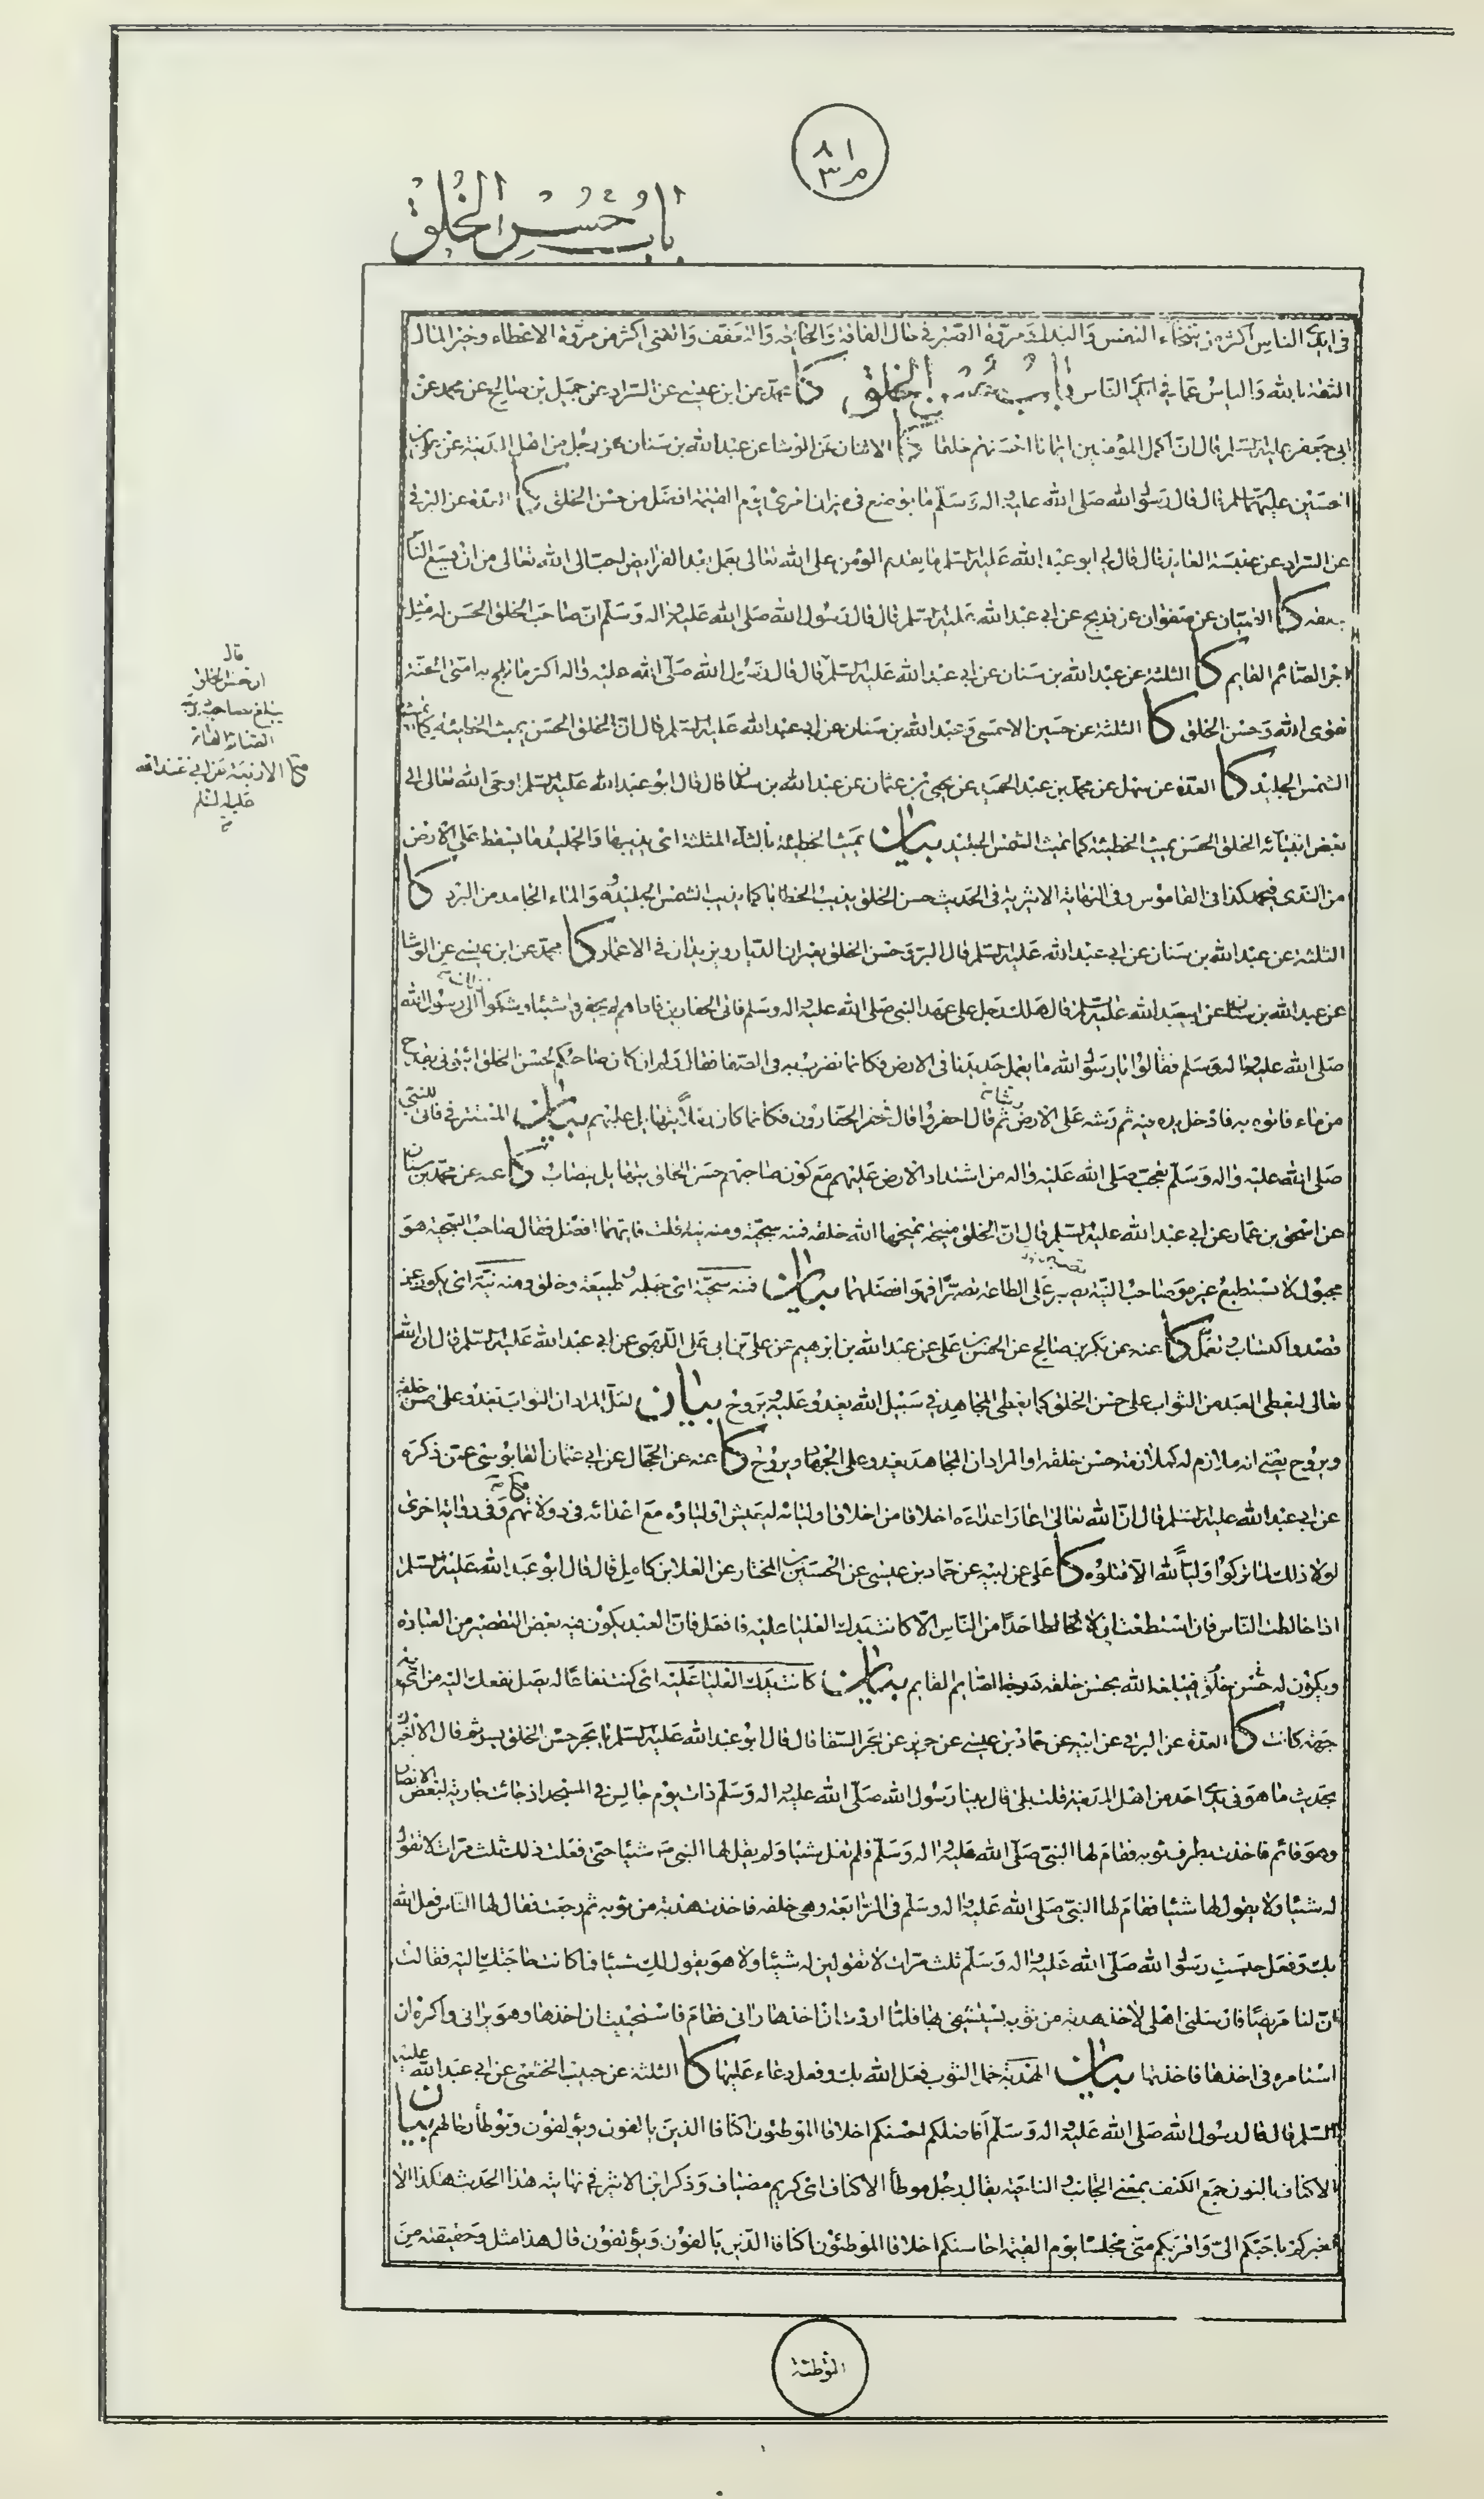 ٨١
٣م
باب حسن الخلق
في ايدي الناس اكثر من سخاء النفس والبذل ومروة الصبر في حال الفاقة والحاجة والتعفف والغنى اكثر من مروة الاعطاء وخير المال
الثقة بالله والياس عما في ايدي الناس باب حسن الخلق كا محمد عن ابن عيسى عن السراد عن جميل بن صالح عن محمد عن
ابي جعفر عليه السلم قال ان اكمل المؤمنين ايمانا احسنهم خلقا كا الاثنان عن الوشا عن عبد الله بن سنان عن رجل من اهل المدينة عن علي بن
الحسين عليهما السلم قال قال رسول الله صلى الله عليه واله وسلم ما يوضع في ميزان امرئ يوم القيمة افضل من حسن الخلق كا العدة عن البرقي
عن السراد عن عنبسة العابد قال قال لي ابو عبد الله عليه السلم ما يقدم المؤمن على الله تعالى بعمل بعد الفرايض احب الى الله تعالى من ان يسع الناس
بخلقه كا الاثنان عن صفوان عن ذريح عن ابي عبد الله عليه السلم قال قال رسول الله صلى الله عليه واله وسلم ان صاحب الخلق الحسن له مثل
اجر الصائم القايم كا الثلثة عن عبد الله بن سنان عن ابي عبد الله عليه السلم قال قال رسول الله صلى الله عليه واله اكثر ما تلج به امتي الجنة
تقوى الله وحسن الخلق كا الثلثة عن حسين الاحمسي وعبد الله بن سنان عن ابي عبد الله عليه السلم قال ان الخلق الحسن يميث الخطيئة كما تميث
الشمس الجليد كا العدة عن سهل عن محمد بن عبد الحميد عن يحيى بن عثمان عن عبد الله بن سنان قال قال ابو عبد الله عليه السلم اوحى الله تعالى الى
بعض انبيائه الخلق الحسن يميث الخطيئة كما تميث الشمس الجليد بيان يميث الخطيئة بالثاء المثلثة اي يذيبها والجليد ما يسقط على الارض
من الندى فيجمد كذا في القاموس وفي النهاية الاثيرية في الحديث حسن الخلق يذيب الخطايا كما يذيب الشمس الجليد وهو الماء الجامد من البرد كا
الثلثة عن عبد الله بن سنان عن ابي عبد الله عليه السلم قال البر وحسن الخلق يعمران الديار ويزيدان في الاعمار كا محمد عن ابن عيسى عن الوشا
عن عبد الله بن سنان عن ابي عبد الله عليه السلم قال هلك رجل على عهد النبي صلى الله عليه واله وسلم فاتى الحفارين فاذا هم لم يحفروا شيئا وشكوا الى رسول الله
صلى الله عليه واله وسلم فقالوا يا رسول الله ما يعمل حديدنا في الارض فكانما نضرب به في الصفا فقال ولم ان كان صاحبكم لحسن الخلق ائتوني بقدح
من ماء فاتوه به فادخل يده فيه ثم رشه على الارض ثم قال احفروا قال فحفر الحفارون فكانما كان رملا يتهايل عليهم بيان المستتر في فاتى للنبي
صلى الله عليه واله وسلم تعجب صلى الله عليه واله من اشتداد الارض عليهم مع كون صاحبهم حسن الخلق يتهايل ينصاب كا عنه عن محمد بن سنان
عن اسحق بن عمار عن ابي عبد الله عليه السلم قال ان الخلق منيحة يمنحها الله خلقه فمنه سجية ومنه نية قلت فايتهما افضل فقال صاحب السجية هو
مجبول لا يستطيع غيره وصاحب النية يصبر على الطاعة تصبرا فهو افضلهما بيان فمنه سجية اي جبلة وطبيعة وخلق ومنه نية اي يكون عن
قصد واكتساب وتعمل كا عنه عن بكر بن صالح عن الحسن بن علي عن عبد الله بن ابرهيم عن علي بن ابي علي اللهبي عن ابي عبد الله عليه السلم قال ان الله
تعالى ليعطي العبد من الثواب على حسن الخلق كما يعطي المجاهد في سبيل الله يغدو عليه ويروح بيان لعل المراد ان الثواب يغدو على حسن خلقه
ويروح يعني انه ملازم له كملازمة حسن خلقه او المراد ان المجاهد يغدو على الجهاد ويروح كا عنه عن الحجال عن ابي عثمان القابوسي عمن ذكره
عن ابي عبد الله عليه السلم قال ان الله تعالى اعار اعداءه اخلاقا من اخلاق اوليائه ليعيش اولياؤه مع اعدائه في دولاتهم وفي رواية اخرى
لولا ذلك لما تركوا وليا لله الا قتلوه كا علي عن ابيه عن حماد بن عيسى عن الحسين بن المختار عن العلا بن كامل قال قال ابو عبد الله عليه السلم
اذا خالطت الناس فان استطعت ان لا تخالط احدا من الناس الا كانت يدك العليا عليه فافعل فان العبد يكون فيه بعض التقصير من العبادة
ويكون له حسن خلق فيبلغه الله بحسن خلقه درجة الصايم القايم بيان كانت يدك العليا عليه اي كنت نفاعا له يصل نفعك اليه من اي
جهة كانت كا العدة عن البرقي عن ابيه عن حماد بن عيسى عن حريز عن بحر السقا قال قال ابو عبد الله عليه السلم يا بحر حسن الخلق يسر ثم قال الا اخبرك
بحديث ما هو في يدي احد من اهل المدينة قلت بلى قال بينا رسول الله صلى الله عليه واله وسلم ذات يوم جالس في المسجد اذ جائت جارية لبعض الانصار
وهو قائم فاخذت بطرف ثوبه فقام لها النبي صلى الله عليه واله وسلم فلم تقل شيئا ولم يقل لها النبي ص شيئا حتى فعلت ذلك ثلث مرات لا تقول
له شيئا ولا يقول لها شيئا فقام لها النبي صلى الله عليه واله وسلم في الرابعة وهي خلفه فاخذت هدبة من ثوبه ثم رجعت فقال لها الناس فعل الله
بك وفعل حبست رسول الله صلى الله عليه واله وسلم ثلث مرات لا تقولين له شيئا ولا هو يقول لك شيئا فما كانت حاجتك اليه فقالت
ان لنا مريضا فارسلني اهلي لاخذ هدبة من ثوبه يستشفي بها فلما اردت ان اخذها راني فقام فاستحييت ان اخذها وهو يراني واكره ان
استامره في اخذها فاخذتها بيان الهدبة خمل الثوب فعل الله بك وفعل دعاء عليها كا الثلثة عن حبيب الخثعمي عن ابي عبد الله عليه
السلم قال قال رسول الله صلى الله عليه واله وسلم افاضلكم احسنكم اخلاقا الموطئون اكنافا الذين يالفون ويؤلفون وتوطأ رحالهم بيان
الاكناف بالنون جمع الكنف بمعنى الجانب والناحية يقال رجل موطأ الاكناف اي كريم مضياف وذكر ابن الاثير في نهايته هذا الحديث هكذا الا
اخبركم باحبكم الي واقربكم مني مجلسا يوم القيمة احاسنكم اخلاقا الموطئون اكنافا الذين يالفون ويؤلفون قال هذا مثل وحقيقته من
التوطئة
قال
ان حسن الخلق
يبلغ بصاحبه درجة
الصائم القائم
كا الاربعة عن ابي عبد الله
عليه السلم